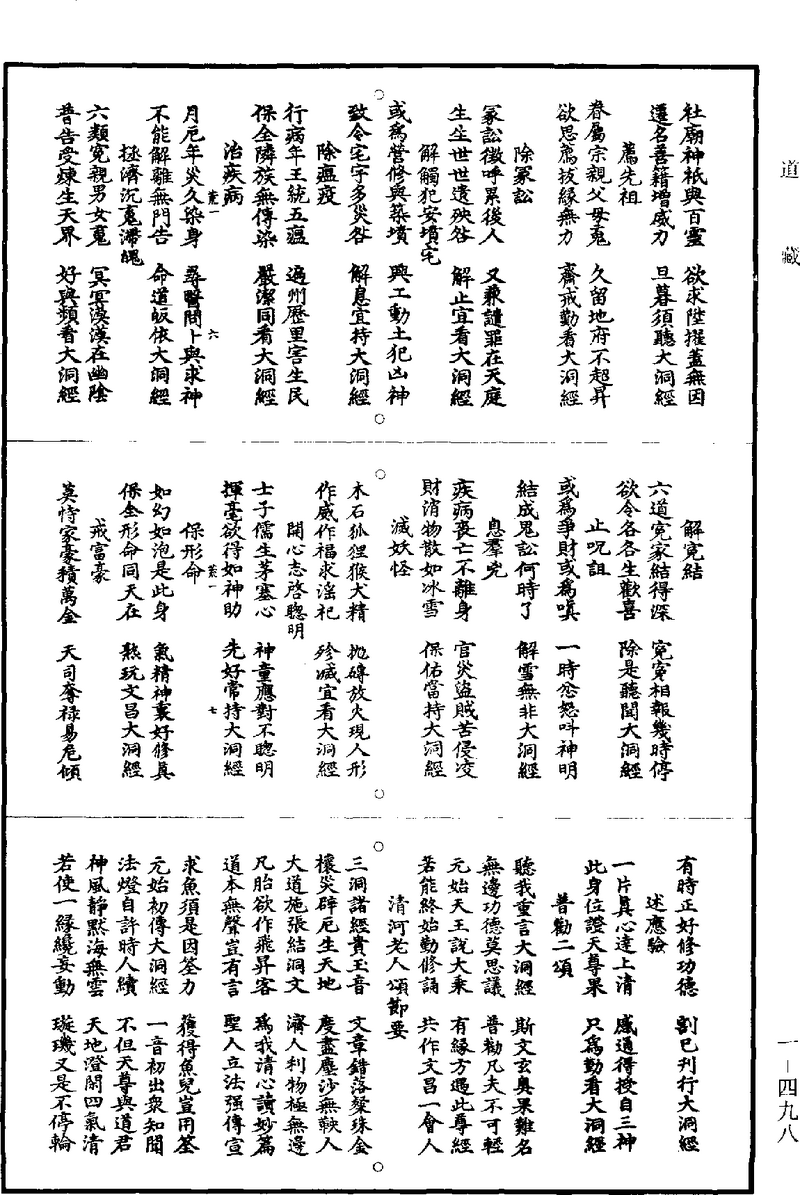 道藏
社廟神祇與百靈 欲求陞擢蓋無因
遷名善籍增威力 旦暮須聽大洞經
薦先祖
眷屬宗親父母䰟 久留地府不超昇
欲思薦拔緣無力 齋戒勤看大洞經
除冢訟
冢訟徵呼累後人 又兼譴罪在天庭
生生世世遺殃咎 解止宜看大洞經
解觸犯安墳宅
或爲營修與築墳 興工動土犯凶神
致令宅宇多災咎 解息宜持大洞經
除瘟疫
行病年王統五瘟 遍州歷里害生民
保全隣族無傳染 嚴潔同看大洞經
治疾病
月厄年災久染身 尋醫問卜與求神
不能解離無門告 命道皈依大洞經
拯濟沉䰟滯魄
六類寃親男女䰟 冥冥漠漠在幽陰
普告受煉生天界 好與頻看大洞經
解寃結
六道寃家結得深 寃寃相報幾時停
欲令各各生歡喜 除是聽聞大洞經
止呪詛
或爲爭財或爲嗔 一時忿怒呌神明
結成鬼訟何時了 解雪無非大洞經
息羣兇
疾病喪亡不離身 官災盜賊苦侵凌
財消物散如冰雪 保佑當持大洞經
滅妖怪
木石狐狸猴犬精 拋磚放火現人形
作威作福求淫祀 殄滅宜看大洞經
開心志啓聰明
士子儒生茅塞心 神童應對不聰明
揮毫欲得如神助 先好常持大洞經
保形命
如幻如泡是此身 氣精神裏好修眞
保全形命同天在 熟玩文昌大洞經
戒富豪
莫恃家豪積萬金 天司奪祿易危傾
有時正好修功德 劉巳刋行大洞經
述應驗
一片眞心達上清 感通得授自三神
此身位證天尊果 只爲勤看大洞經
普勸二頌
聽我重言大洞經 斯文玄奧果難名
無邊功德莫思議 普勸凡夫不可輕
元始天王說大乘 有緣方遇此尊經
若能終始勤修誦 共作文昌一會人
清河老人頌節要
三洞諸經貴玉音 文章錯落粲珠金
欀災辟厄生天地 度盡塵沙無數人
大道施張結洞文 濟人利物極無邊
凡胎欲作飛昇客 爲我清心讀妙篇
道本無聲豈有言 聖人立法强傳宣
求魚須是因筌力 獲得魚兒豈用筌
元始初傳大洞經 一音初出衆知聞
法燈自許時人續 不但天尊與道君
神風靜默海無雲 天地澄開四氣清
若使一緣纔妄動 璇璣又是不停輪
一－四九八